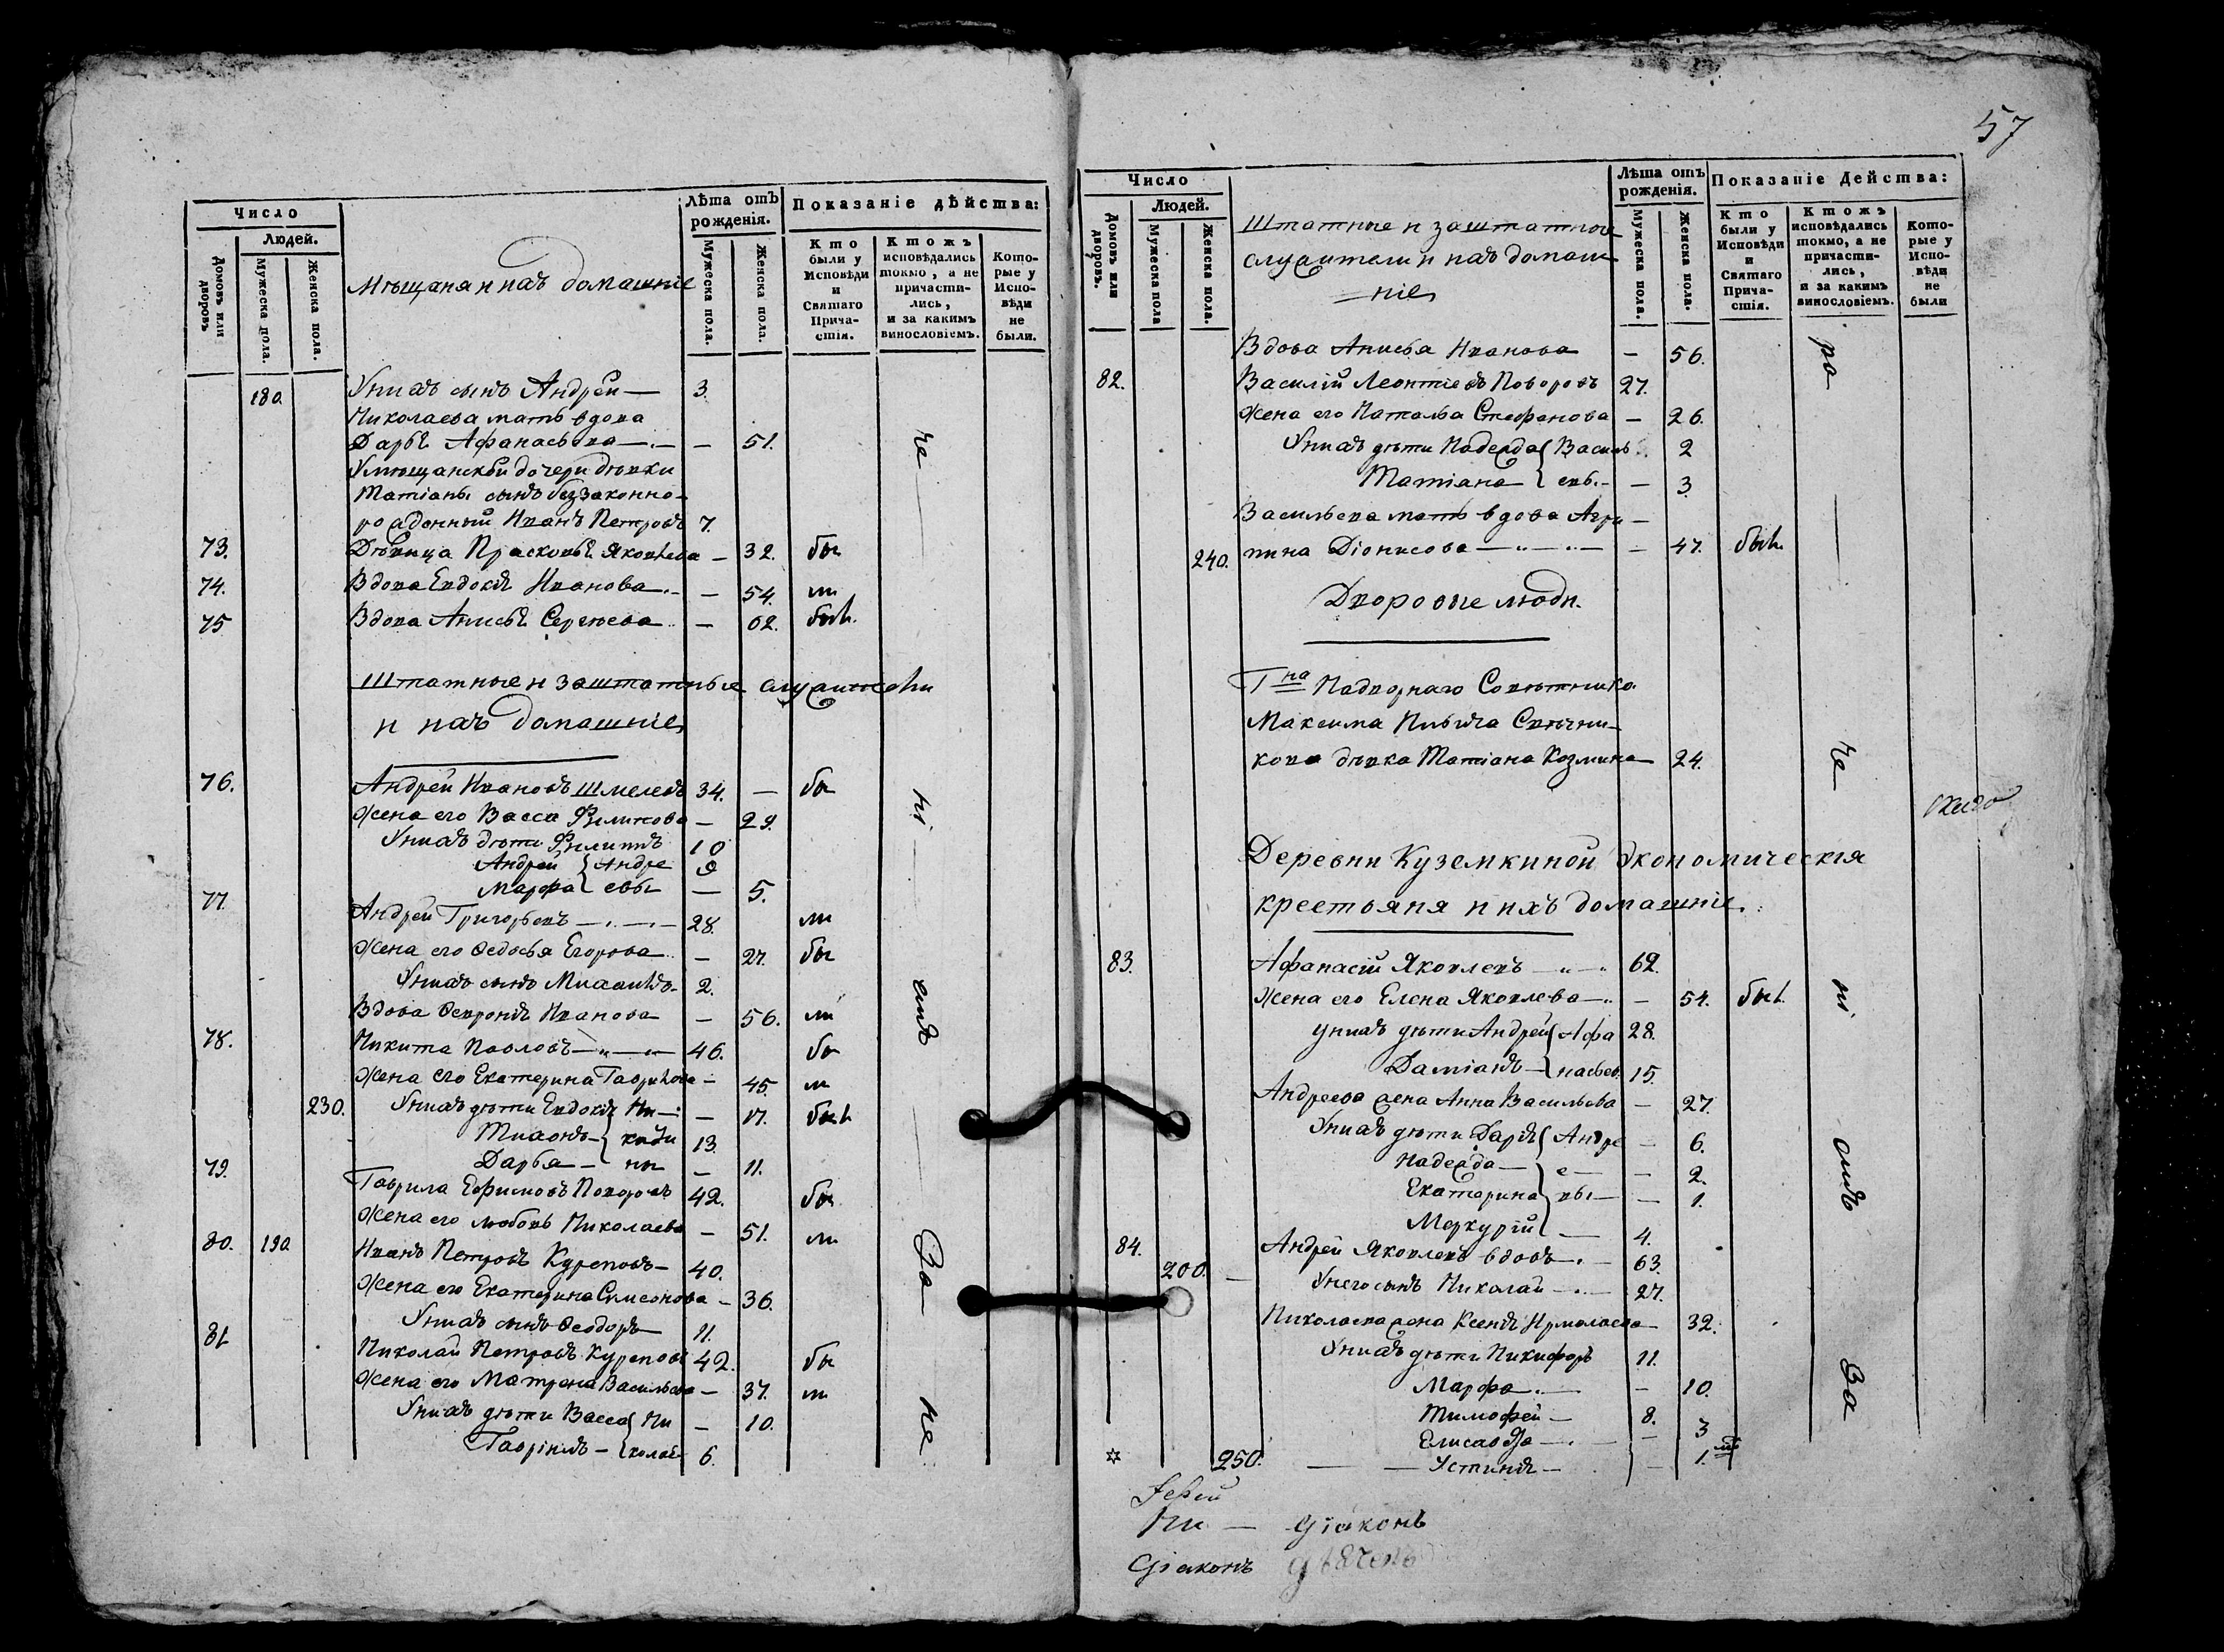 57
Число
Людей.
Домовъ или дворовъ
Мужеска пола.
Женска пола.
Мѣщаня и ихъ домашніе
Лѣта отъ рожденія.
Мужеска пола.
Женска пола.
Показаніе дѣйства:
Кто были у Исповѣди и Святаго Прича-стія.
Ктожъ исповѣдались токмо, а не причасти-лись, и за какимъ винословіемъ.
Кото-рые у Испо-вѣди не были.
180. У нихъ сынъ Андрей — 3.
Николаева мать вдова
Дарья Афанасьева — — 51.
У мѣщанской дочери дѣвки
Татіаны сынъ беззаконно-
рожденный Иванъ Петровъ 7.
73. Дѣвица Прасковья Яковлева — 32. бы
74. Вдова Евдокія Иванова — 54. ли
75 Вдова Анисья Сергѣева — 62. были.
Штатные и заштатные служители
и ихъ домашніе
76. Андрей Ивановъ Шмелевъ 34. — бы
Жена его Васса Филипова — 29.
У нихъ дѣти Филиппъ 10
Андрей } Андре 9
Марфа } евы — 5.
77. Андрей Григорьевъ — 28. ли
Жена его Ѳедосья Егорова — 27. бы
У нихъ сынъ Михаилъ 2.
Вдова Февронія Иванова — 56. ли
78. Никита Павловъ — 46. бы
Жена его Екатерина Гаврилова — 45. ли
230. У нихъ дѣти Евдокія Ни — 17. были
Тихонъ } киты 13.
Дарья — ны — 11.
79. Гаврила Ефимовъ Поворовъ 42. бы
Жена его Любовь Николаева — 51. ли
80. 190 Иванъ Петровъ Куреповъ — 40.
Жена его Екатерина Симеонова — 36.
У нихъ сынъ Ѳеодоръ 11.
81 Николай Петровъ Куреповъ 42. бы
Жена его Матрена Васильева — 37. ли
У нихъ дѣти Васса } Ни — 10.
Гавріилъ — } колае 6.
Число
Людей.
Домовъ или дворовъ.
Мужеска пола
Женска пола.
Штатные и заштатные
служители и ихъ домаш-
ніе
Лѣта отъ рожденія.
Мужеска пола.
Женска пола.
Показаніе Действа:
Кто были у Исповѣди и Святаго Прича-стія.
Ктожъ исповѣдались токмо, а не причасти-лись, и за какимъ винословіемъ.
Кото-рые у Испо-вѣди не были
Вдова Анисья Иванова — 56.
82. Василій Леонтіевъ Поворовъ 27.
Жена его Наталья Стефанова — 26.
У нихъ дѣти Надежда } Василь 2
Татіана } евы — 3.
Васильева мать вдова Агри —
240. пина Діонисова — — 47. были
Дворовые люди.
Гна Надворнаго Совѣтника
Максима Ильича Свѣчни-
кова дѣвка Татіана Козмина 24.
Деревни Куземкиной Экономическія
крестьяня и ихъ домашніе.
83. Афанасій Яковлевъ — 62.
Жена его Елена Яковлева — 54. были
У нихъ дѣти Андрей } Афа 28.
Даміанъ — } насьев. 15.
Андреева жена Анна Васильева — 27.
У нихъ дѣти Дарія } Андре — 6.
Надежда — } е — — 2.
Екатерина } вы — — 1.
Меркурій } — 4.
84. Андрей Яковлевъ вдовъ — 63.
200. У него сынъ Николай — 27.
Николаева жена Ксенія Ермолаева — 32.
У нихъ дѣти Никифоръ 11.
Марфа — — 10.
Тимофей — 8.
Елисавета — — 3
250. Устинія — — 1.
Іерей
діаконъ
Діаконъ